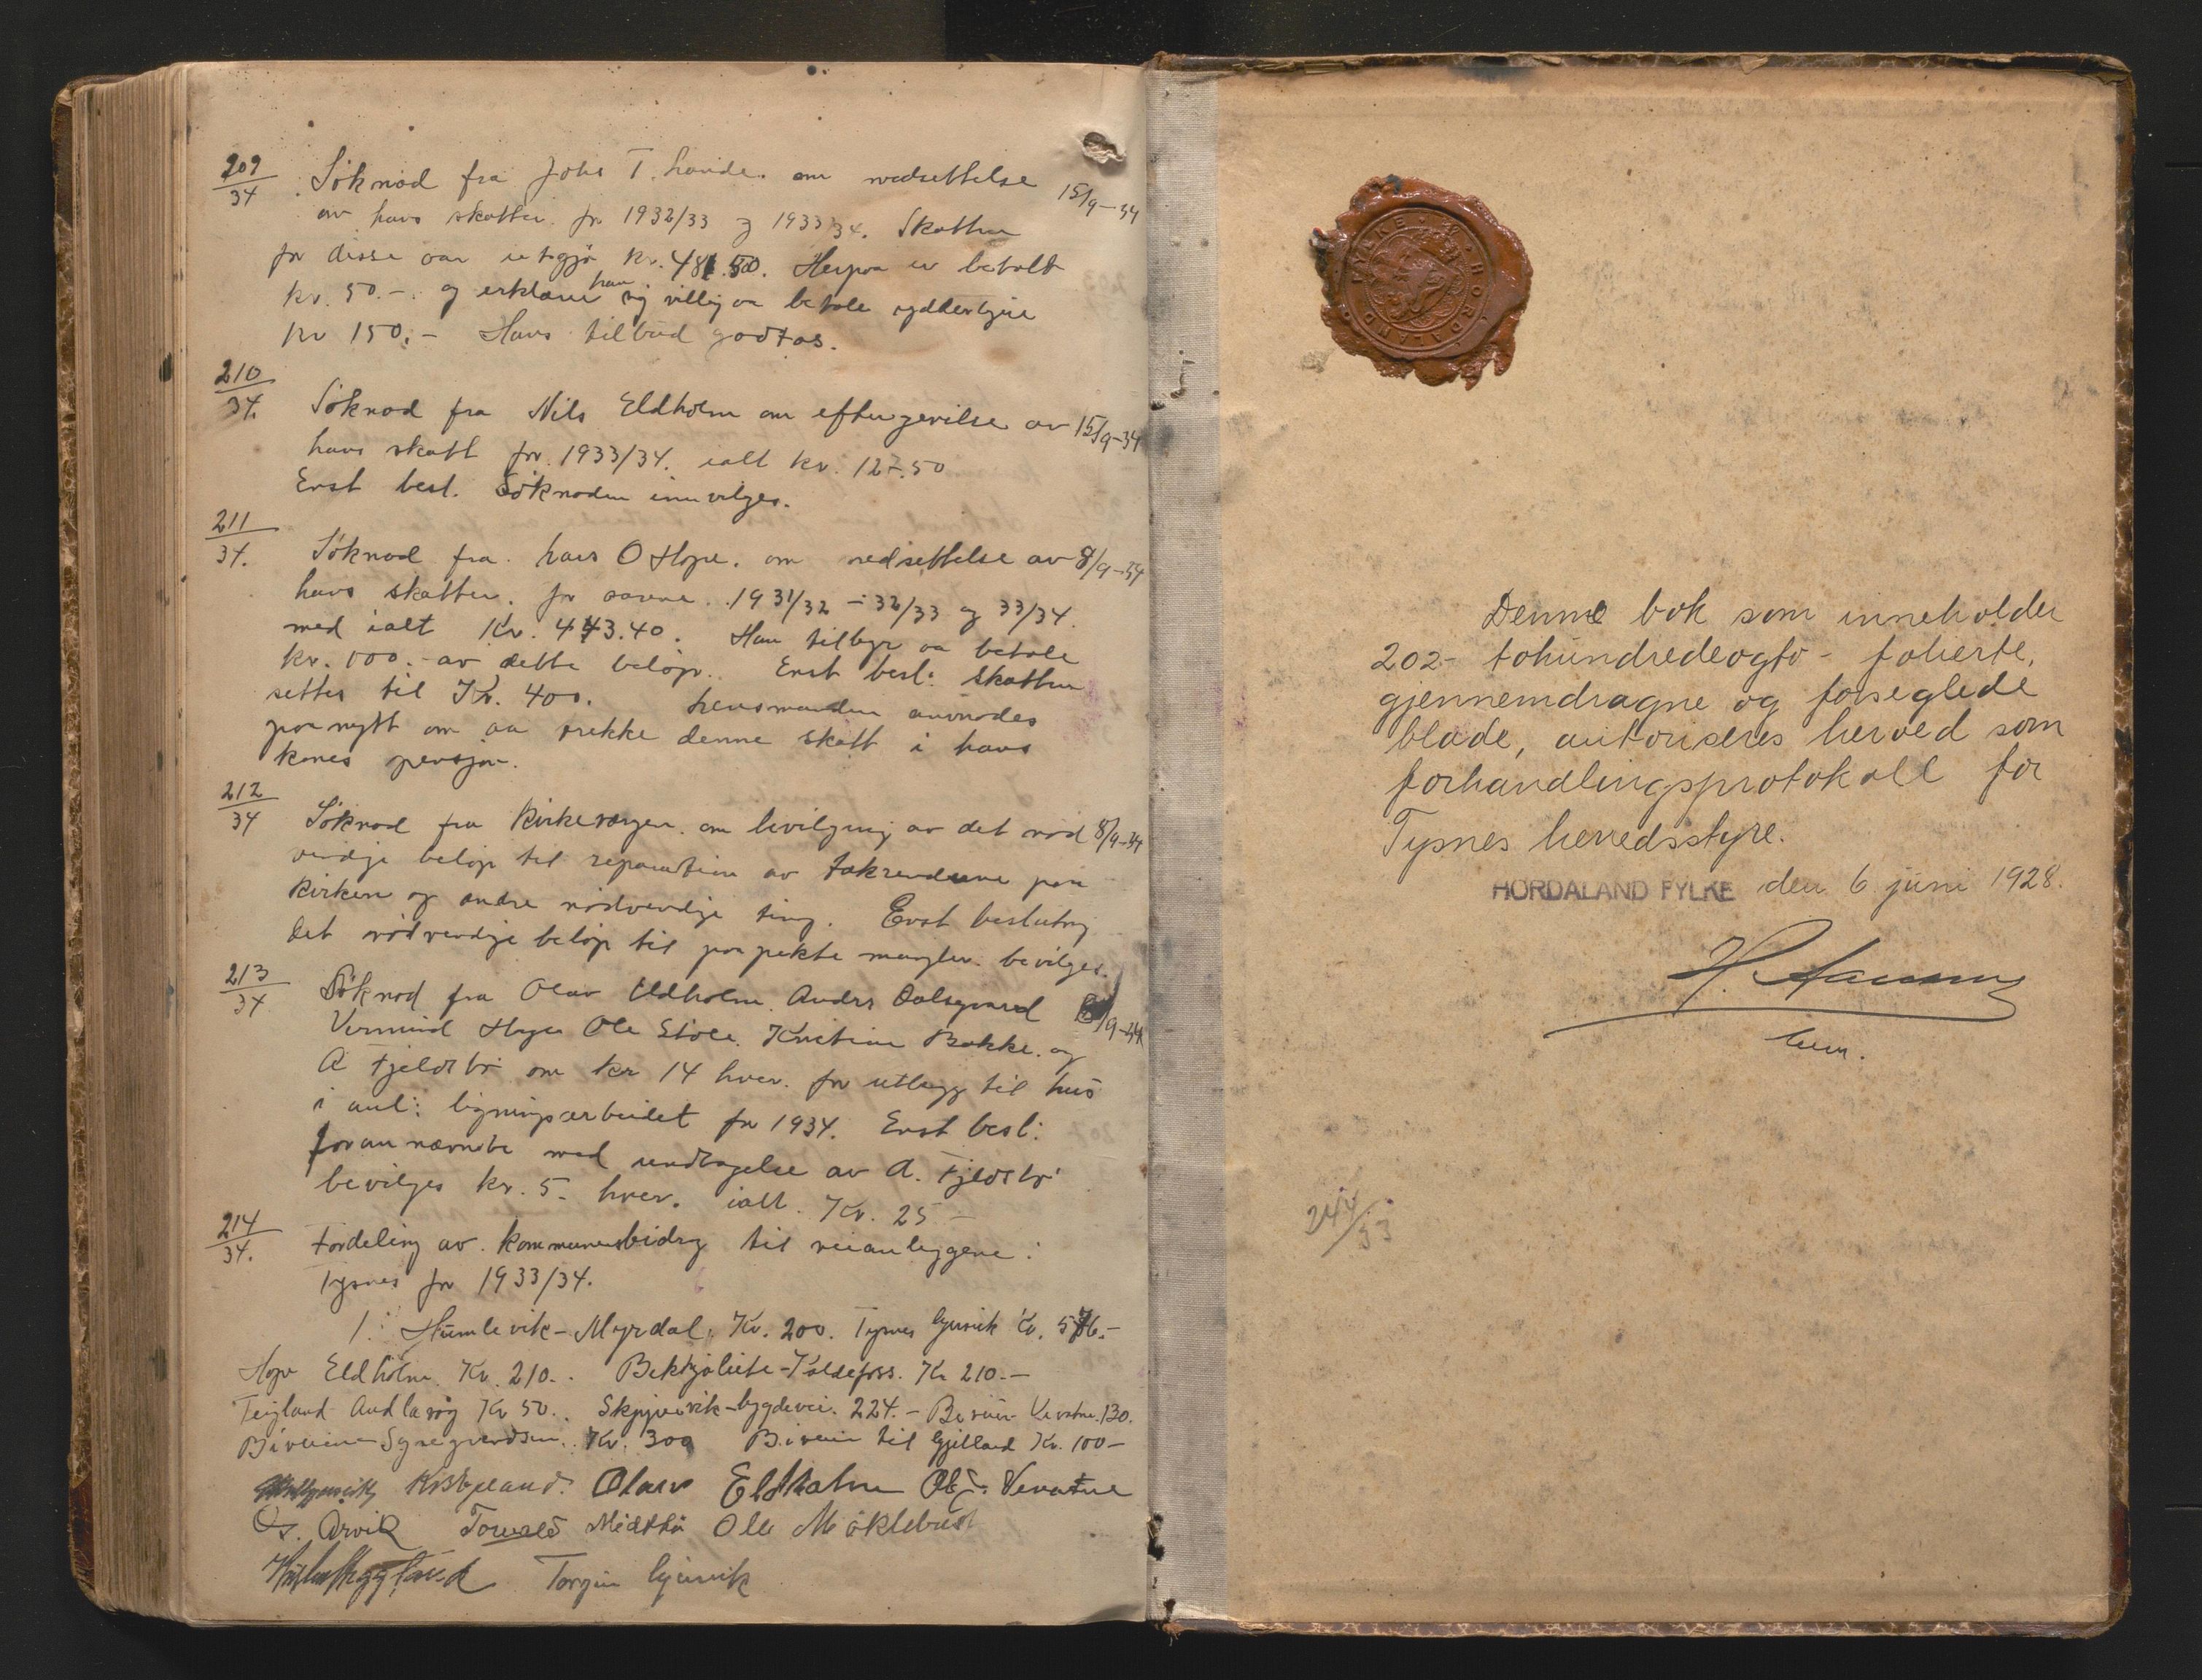 209/34 Söknad fra Johs T. om nedsettelse 15/9-34
av hans skatter for 1932/33 og 1933/34. Skatten
for disse aar utgjör kr. 481.50. Herpaa er betalt
kr. 50.- og erklærer han sig villig aa betale ydderligere
kr 150.- Hans tilbud godtas.
210/34. Söknad fra Nils Eldholm om eftergivelse av 15/9-34
hans skatt for 1933/34. ialt kr. 127.50
Enst besl. Söknaden innvilges.
211/34. Söknad fra Lars O Hope. om nedsettelse av 8/9-34
hans skatter. for aarene 1931/32 - 32/33 og 33/34.
med ialt Kr. 443.40. Han tilbyr aa betale
kr. 100.- av dette belöp. Enst besl: Skatten
settes til Kr. 400. Lensmanden anmodes
paa nytt om aa trekke denne skatt i hans
kones pensjon.
212/34 Söknad fra Kirkevergen om bevilgning av det nöd 8/9-34
vendige belöp til reparation av takrendene paa
Kirken og andre nödvendige ting. Enst beslutning
det nödvendige belöp til paapekte mangler bevilges.
213/34 Söknad fra Olav Eldholm. Anders Dalsgaard /9-34
Vermund Hope Ole Stöle. Kristian Bakke. og
A Fjeldstö om kr 14 hver. for utlegg til hus
i anl: ligningsarbeidet for 1934. Enst besl:
forannævnte med undtagelse av A. Fjeldstö
bevilges kr. 5.- hver. ialt. Kr. 25 -
214/34. Fordeling av kommunebidrag til veianleggene:
Tysnes for 1933/34.
1: Humlevik - Myrdal, Kr. 200. Tysnes Gjersvik Kr. 576.-
Hope Eldholm. Kr. 210.- - Kaldefoss. Kr 210.-
Teigland Kr 50. - bygdevei. 224.- Beruin Vevatne. 130.
Kr. 300 til Gjelland Kr. 100-
Olav Eldholm Vevatne
O. Arvik Torvald Midttö Ole Möklebust
Torgeir Gjersvik
HORDALAND FYLKE
Denne bok som inneholder
202 - tohundredeogto - folierte,
gjennemdragne og forseglede
blade, autoriseres herved som
forhandlingsprotokoll for
Tysnes herredsstyre.
HORDALAND FYLKE den 6 juni 1928.
244/33